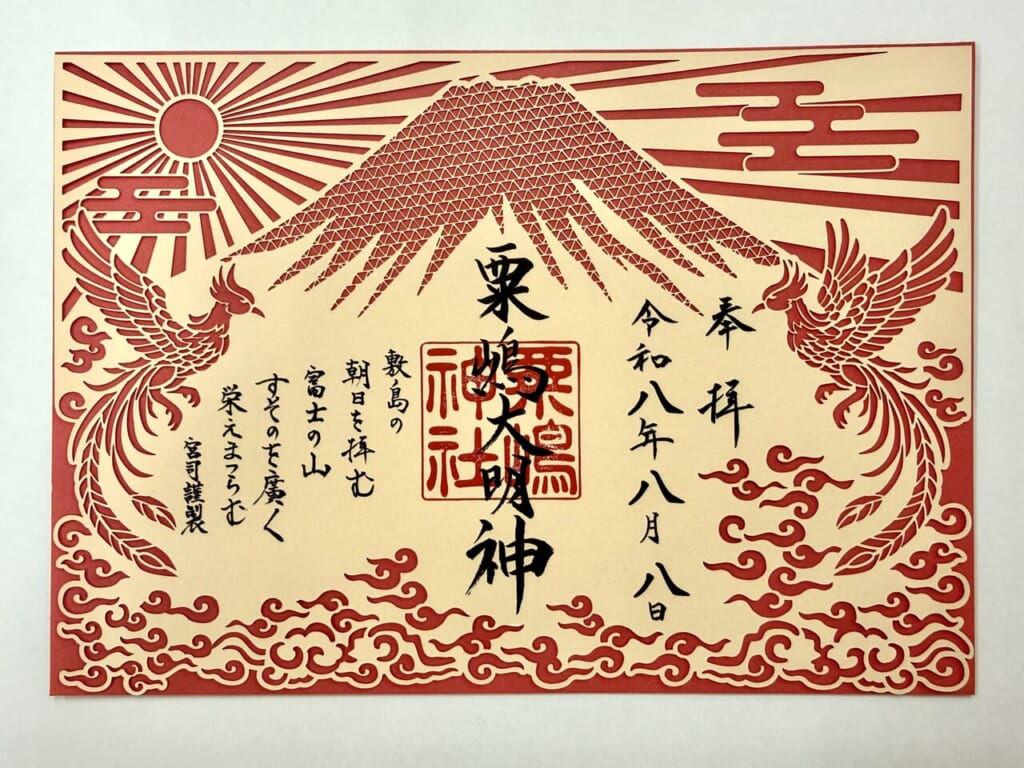 奉拝
令和八年八月八日
粟嶋大明神
粟嶋神社
敷島の
朝日を拝む
富士の山
すそのを廣く
栄えまつらむ
宮司謹製